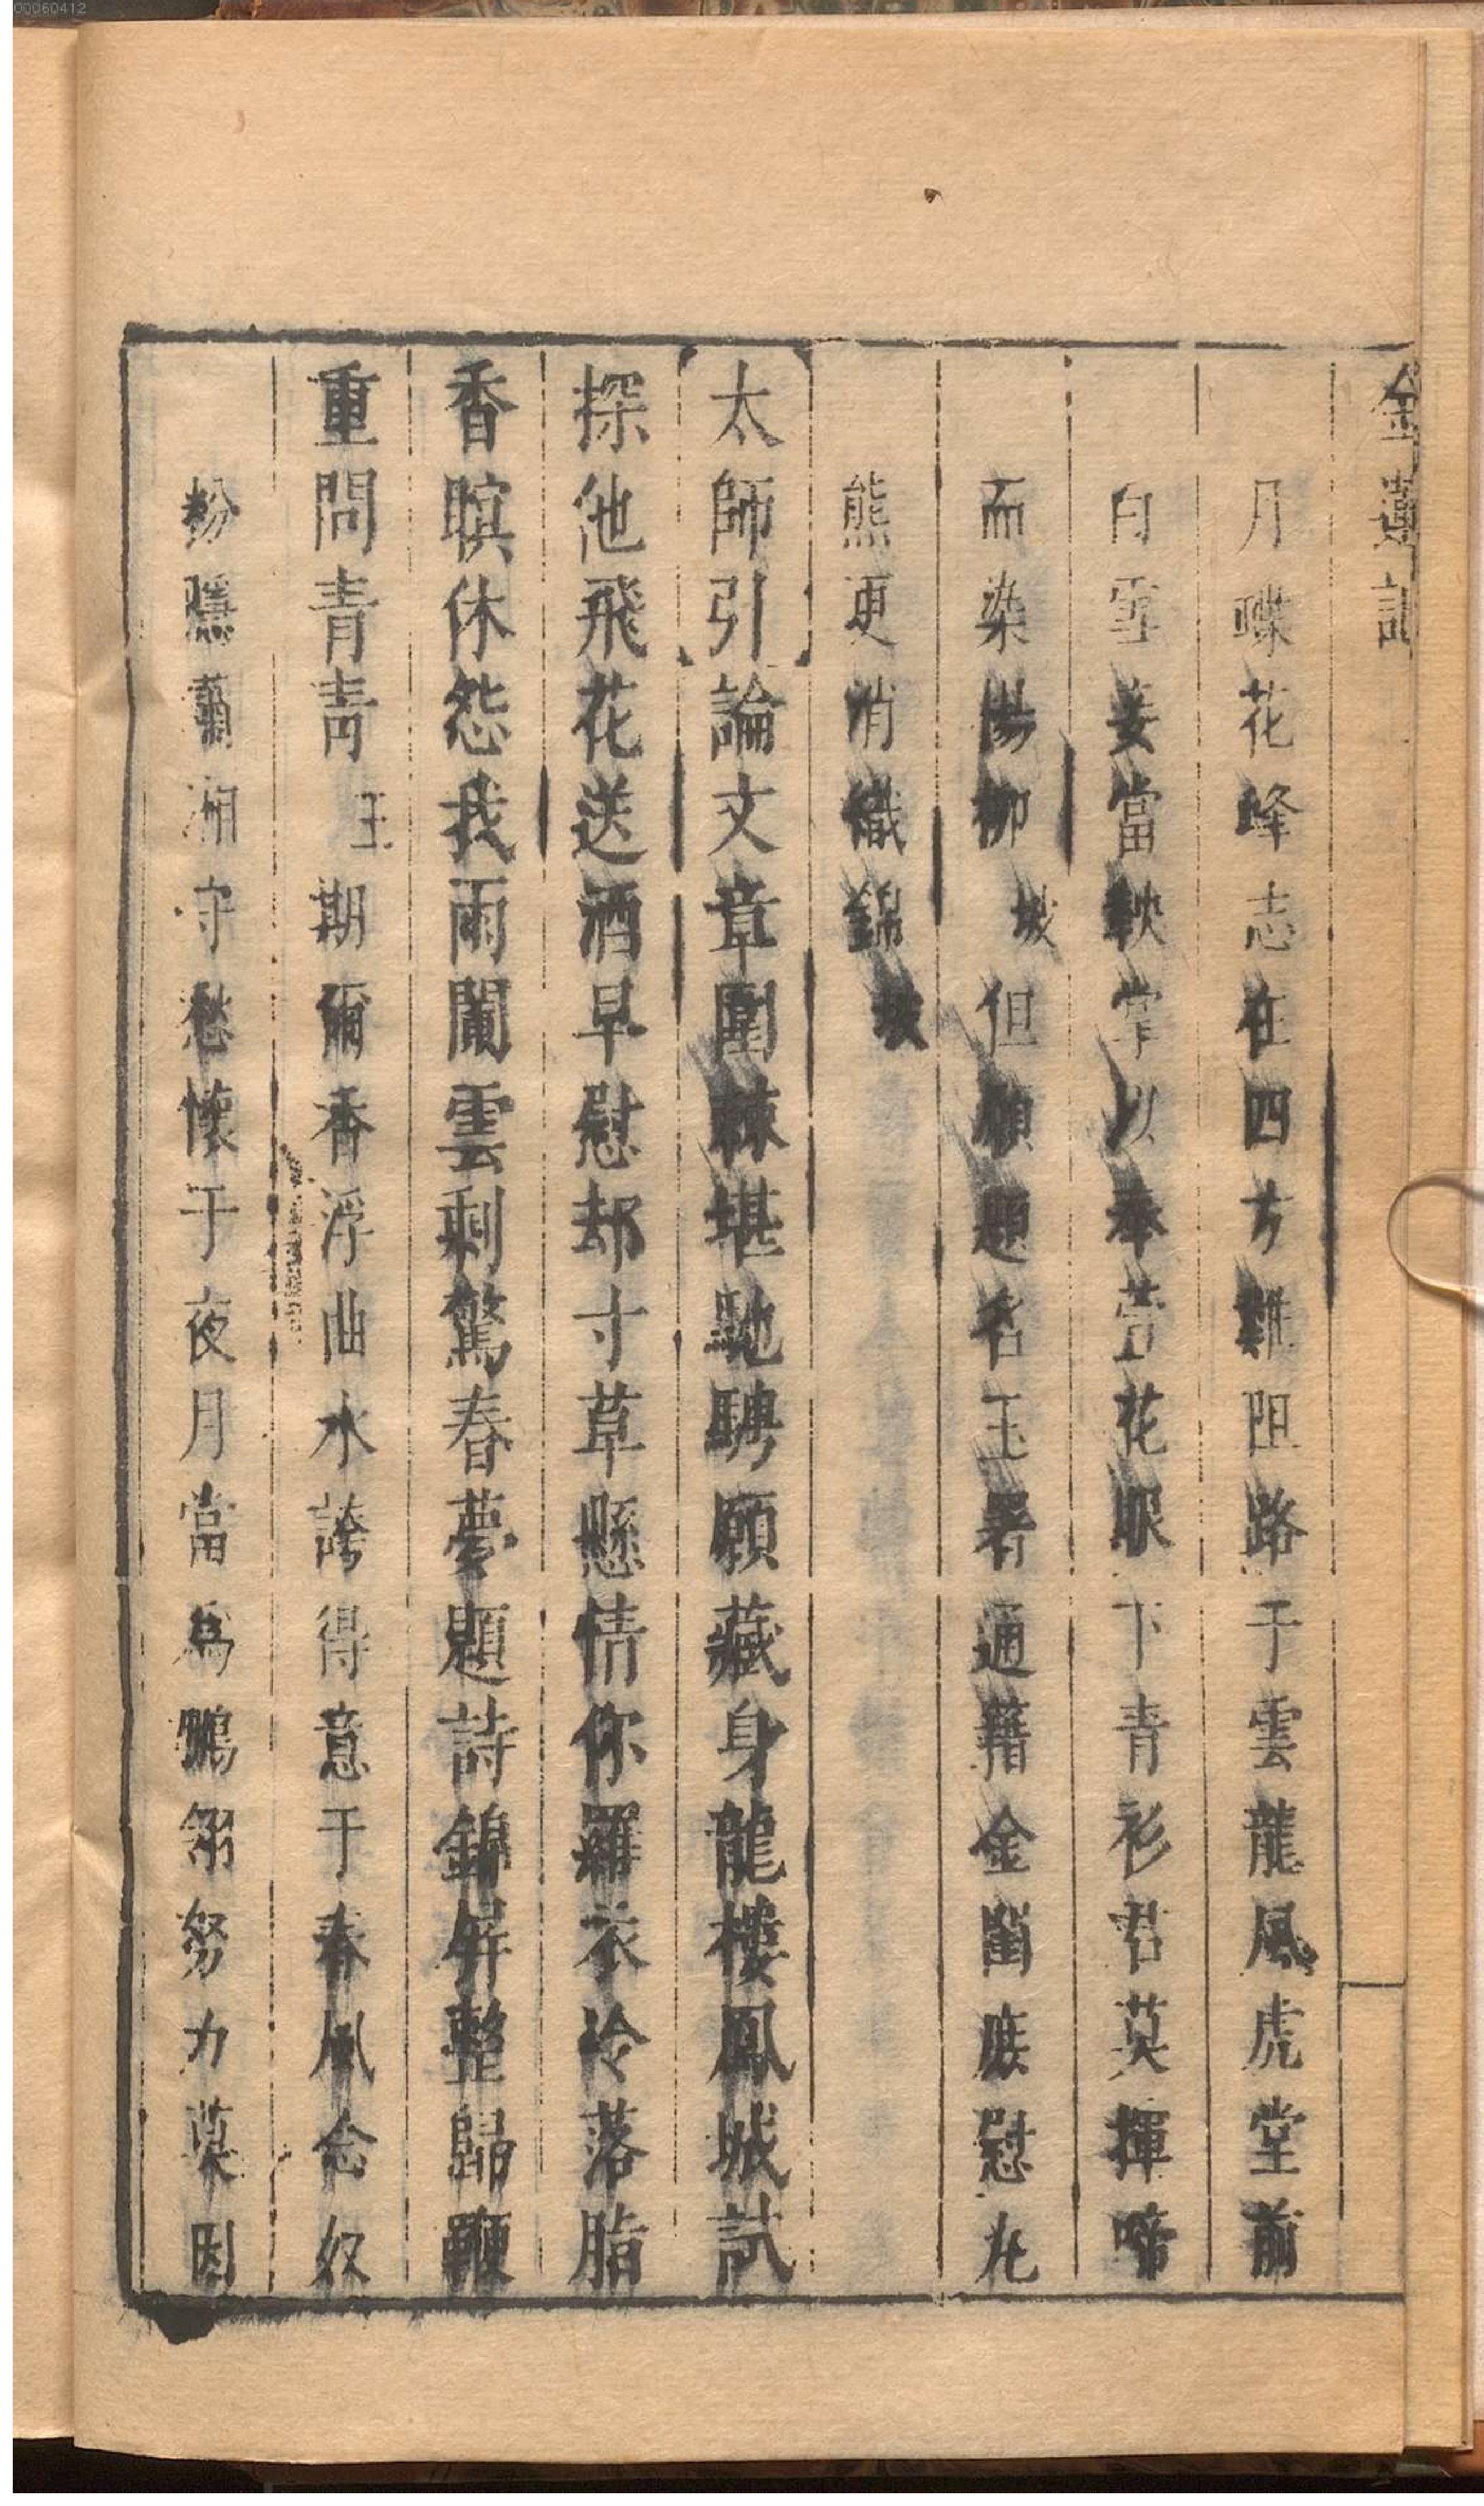 00060412
金蓮記
月喋花峰志在四方難阻路于雲龍風虎堂前
白雪姜當鞅掌以奉萱花眼下青衫君莫揮啼
而染陽柳坡但願題名玉署通籍金閨庶慰九
熊更消織錦坡
太師引論文章圍棘堪馳騁願藏身龍樓鳳城試
探他飛花送酒早慰却寸草懸情你羅衣冷落脂
香暝休怨我雨闌雲剩驚春夢題詩錦屏整歸鞭
重問青青王期爾香浮曲水誇得意于春風念奴
粉隱蕭湘守愁懷于夜月當為鵬翎努力莫因